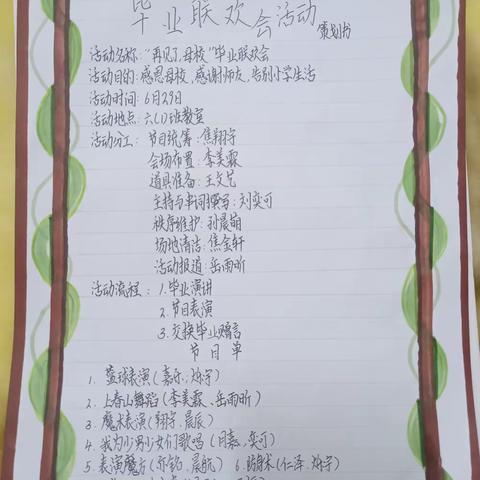 毕业联欢会活动
策划书
活动名称:“再见了,母校”毕业联欢会
活动目的:感恩母校,感谢师友,告别小学生活
活动时间:6月29日
活动地点:六(1)班教室
活动分工:节目统筹:焦翔宇
会场布置:李美霖
道具准备:王文艺
主持与串词撰写:刘奕可
秩序维护:孙晨萌
场地清洁:焦金轩
活动报道:岳雨昕
活动流程:1.毕业演讲
2.节目表演
3.交换毕业赠言
节目单
1.篮球表演(嘉乐、烁宇)
2.上春山舞蹈(李美霖、岳雨昕)
3.魔术表演(翔宇、晨辰)
4.我为少男少女们歌唱(月嘉、奕可)
5.表演魔方(亦铭、晨航) 6.防身术(仁泽、烁宇)